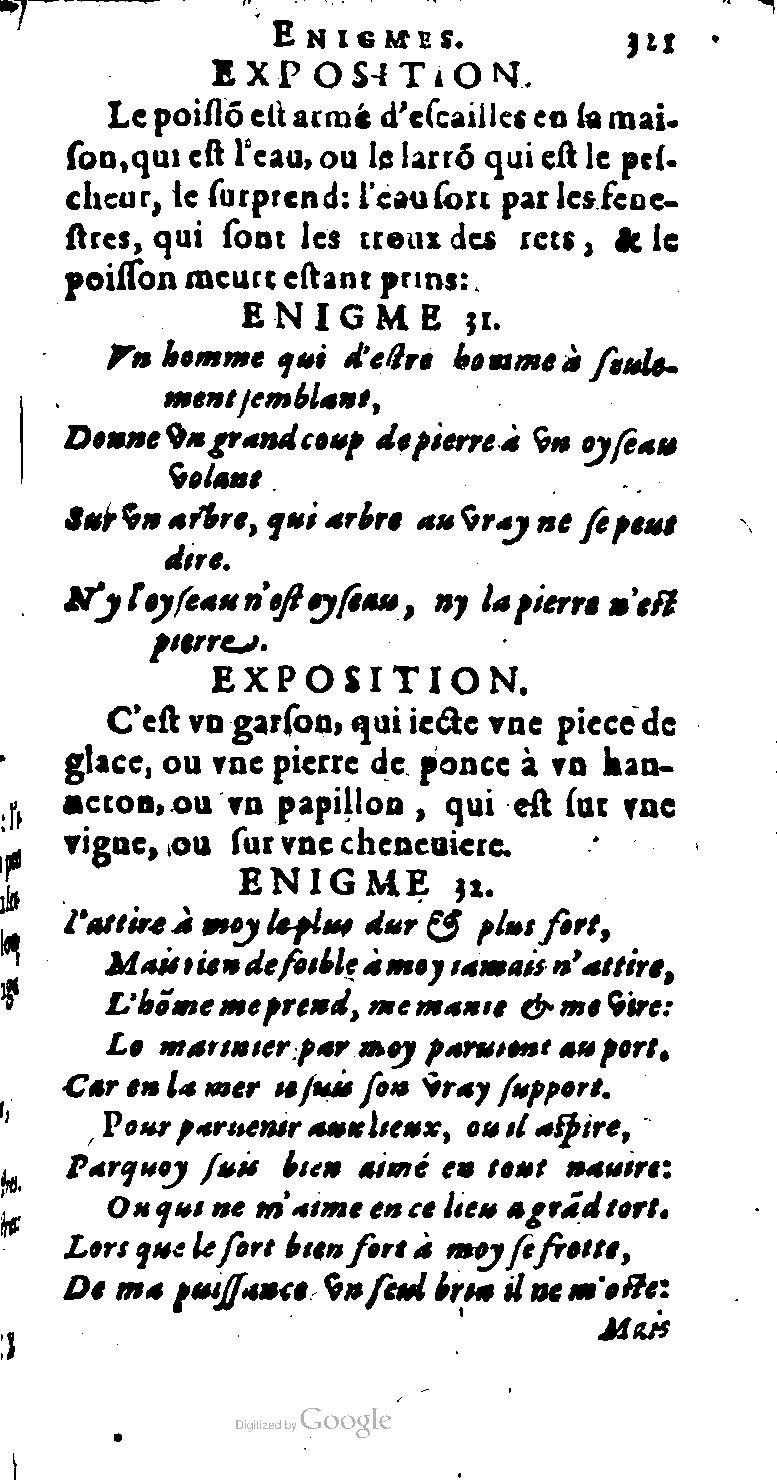 ENIGMES. 321
EXPOSITION.
Le poissõ est armé d'escailles en sa mai-
son, qui est l'eau, ou le larrõ qui est le pes-
cheur, le surprend: l'eau sort par les fene-
stres, qui sont les troux des rets, & le
poisson meurt estant prins:
ENIGME 31.
Vn homme qui d'estre homme à seule-
ment semblant,
Donne vn grand coup de pierre à vn oyseau
volant
Sur vn arbre, qui arbre au vray ne se peut
dire.
N'y l'oyseau n'est oyseau, ny la pierre n'est
pierre.
EXPOSITION.
C'est vn garson, qui iecte vne piece de
glace, ou vne pierre de ponce à vn han-
neton, ou vn papillon, qui est sur vne
vigne, ou sur vne cheneuiere.
ENIGME 32.
I'attire à moy le plus dur & plus fort,
Mais rien de foible à moy iamais n'attire,
L'hõme me prend, me manie & me vire:
Le marinier par moy paruient au port.
Car en la mer ie suis son vray support.
Pour paruenir aux lieux, ou il aspire,
Parquoy suis bien aimé en tout nauire:
Ou qui ne m'aime en ce lieu a grãd tort.
Lors que le fort bien fort à moy se frotte,
De ma puissance vn seul brin il ne m'oste:
Mais
Digitized by Google